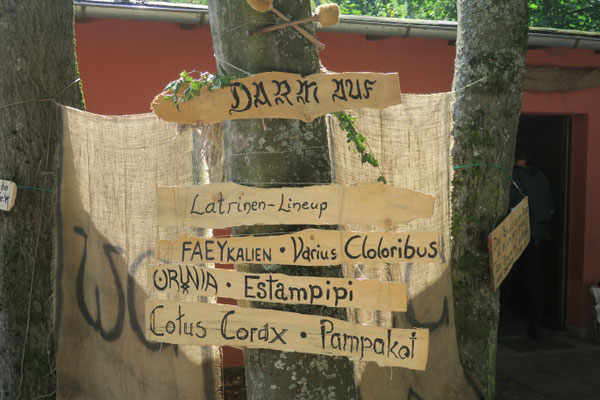 DARM AUF
Latrinen-Lineup
FAEYKALIEN • Varius Cloloribus
URINIA • Estampipi
Cotus Corax • Pampakot
WC